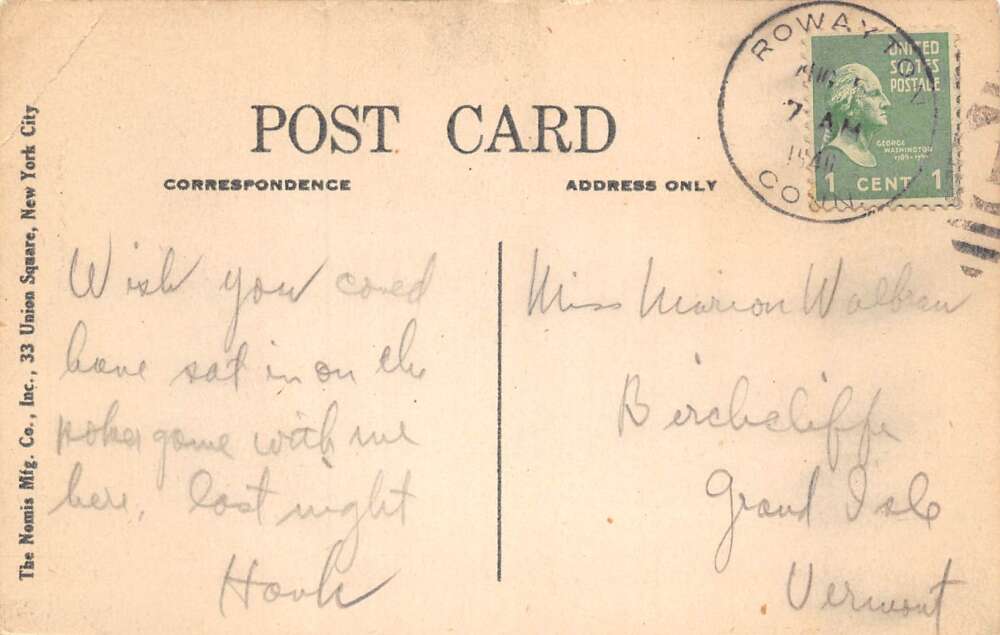 The Nomis Mfg. Co., Inc., 33 Union Square, New York City
POST CARD
CORRESPONDENCE
ADDRESS ONLY
ROWAYTON
AUG
7 AM
1940
CONN.
UNITED
STATES
POSTAGE
GEORGE
WASHINGTON
1 CENT 1
Wish you coued
have sat in on the
poker game with me
here, last night
Hank
Miss Marion Walbran
Birchcliffe
Grand Isle
Vermont